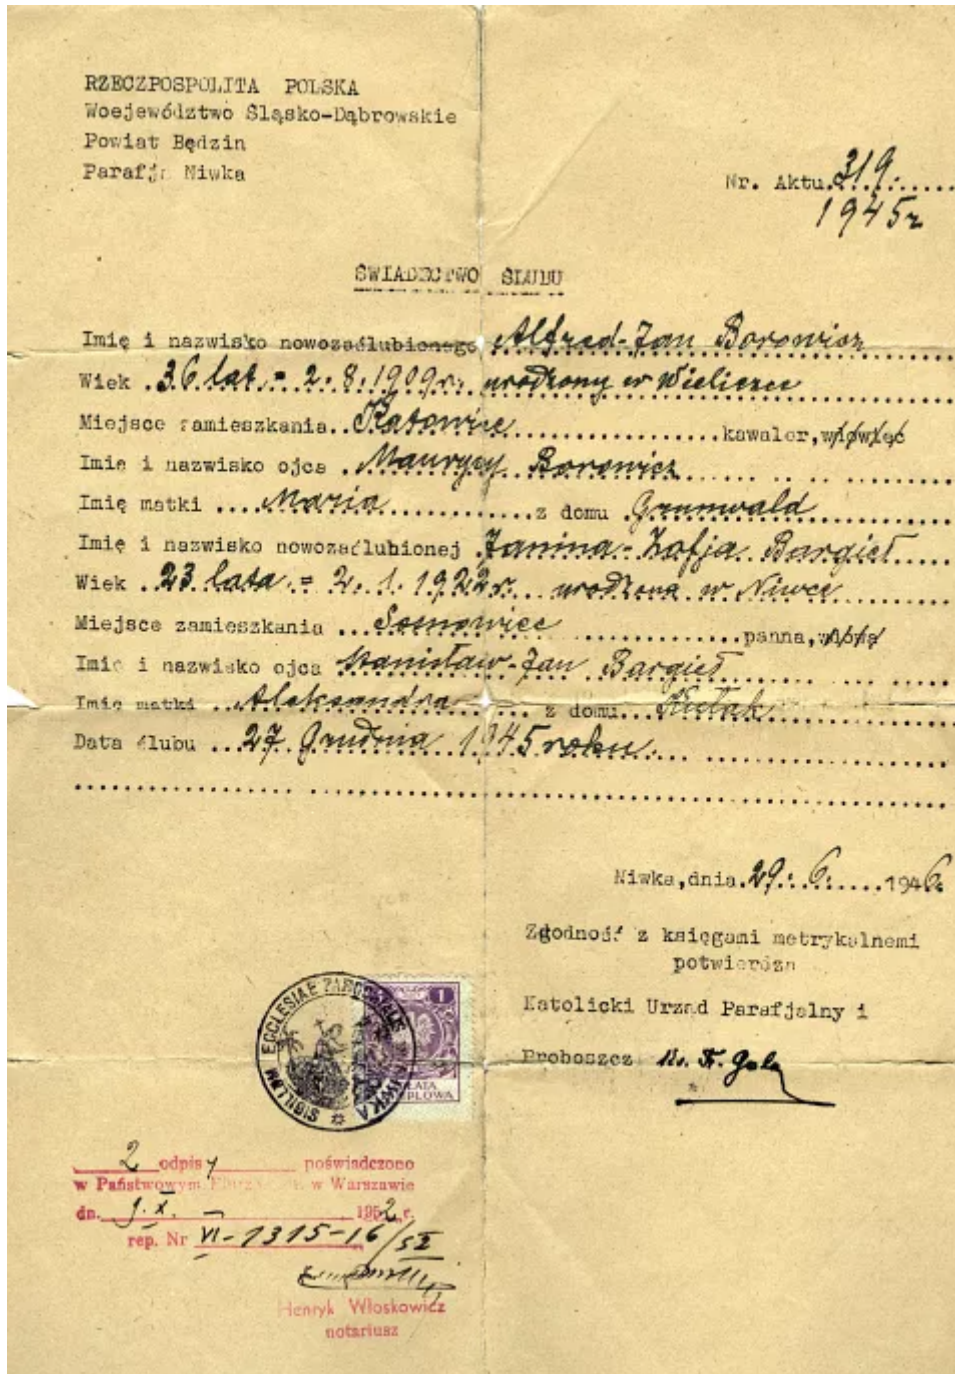 RZECZPOSPOLITA POLSKA
Woejewództwo Śląsko-Dąbrowskie
Powiat Będzin
Parafja Niwka
Nr. Aktu 319.
1945r
ŚWIADECTWO ŚLUBU
Imię i nazwisko nowozaślubionego Alfred-Jan Borowicz
Wiek 36 lat = 2.8.1909r. urodzony w Wieliczce
Miejsce zamieszkania Katowice kawaler, wdowiec
Imię i nazwisko ojca Maurycy Borowicz
Imię matki Maria z domu Grunwald
Imię i nazwisko nowozaślubionej Janina-Zofja Bargieł
Wiek 23 lata = 2.1.1922r. urodzona w Niwce
Miejsce zamieszkania Sosnowiec panna, wdowa
Imię i nazwisko ojca Stanisław-Jan Bargieł
Imię matki Aleksandra z domu Kułak
Data ślubu 27 Grudnia 1945 roku.
Niwka, dnia 29.6. 1946.
Zgodność z księgami metrykalnemi
potwierdza
Katolicki Urząd Parafjalny i
Proboszcz Ks. Fr. Gola
SIGILLUM ECCLESIAE PAROCHIALIS NIWKA
1
PŁOWA
2 odpisy poświadczono
w Państwowym w Warszawie
dn. 9.X. 1952 r.
rep. Nr VI-1315-16/52
Henryk Włoskowicz
notariusz